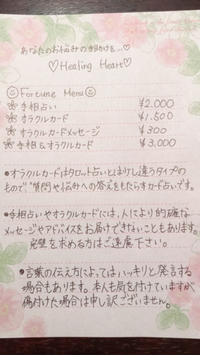 あなたのお悩みの手助けを…♡
♡Healing Heart♡
Fortune Menu
手相占い ¥2.000
オラクルカード ¥1.500
オラクルカードメッセージ ¥300
手相&オラクルカード ¥3.000
●オラクルカードはタロット占いとは少し違うタイプの
もので"質問や悩みへの答えをもらうカード占いです。
●手相占いやオラクルカードには、人により的確な
メッセージやアドバイスをお届けできないこともあります。
完璧を求める方はご遠慮下さい。
●言葉の伝え方によってはハッキリと発言する
場合もあります。本人も気を付けていますが
傷付けた場合は申し訳ございません。